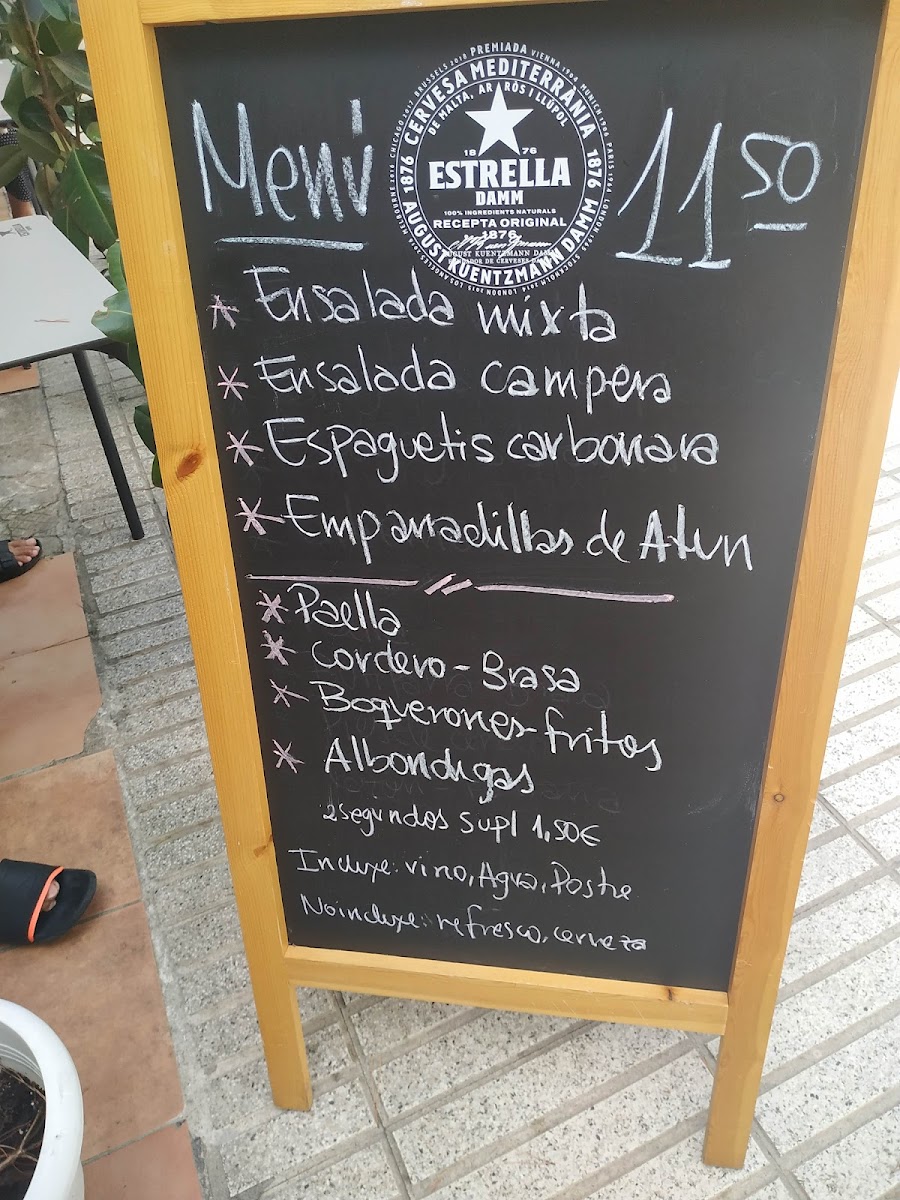 Menú
11 50
PREMIADA
CERVESA MEDITERRÀNIA
DE MALTA, ARRÒS I LLÚPOL
1876
ESTRELLA
DAMM
100% INGREDIENTS NATURALS
RECEPTA ORIGINAL
1876
AUGUST KUENTZMANN DAMM
1876
1876
AUGUST KUENTZMANN DAMM
* Ensalada mixta
* Ensalada campera
* Espaguetis carbonara
* Empanadillas de Atun
* Paella
* Cordero - Brasa
* Boquerones-fritos
* Albondigas
2 segundos supl 1,50€
Incluye: vino, Agua, Postre
No incluye: refresco, cerveza